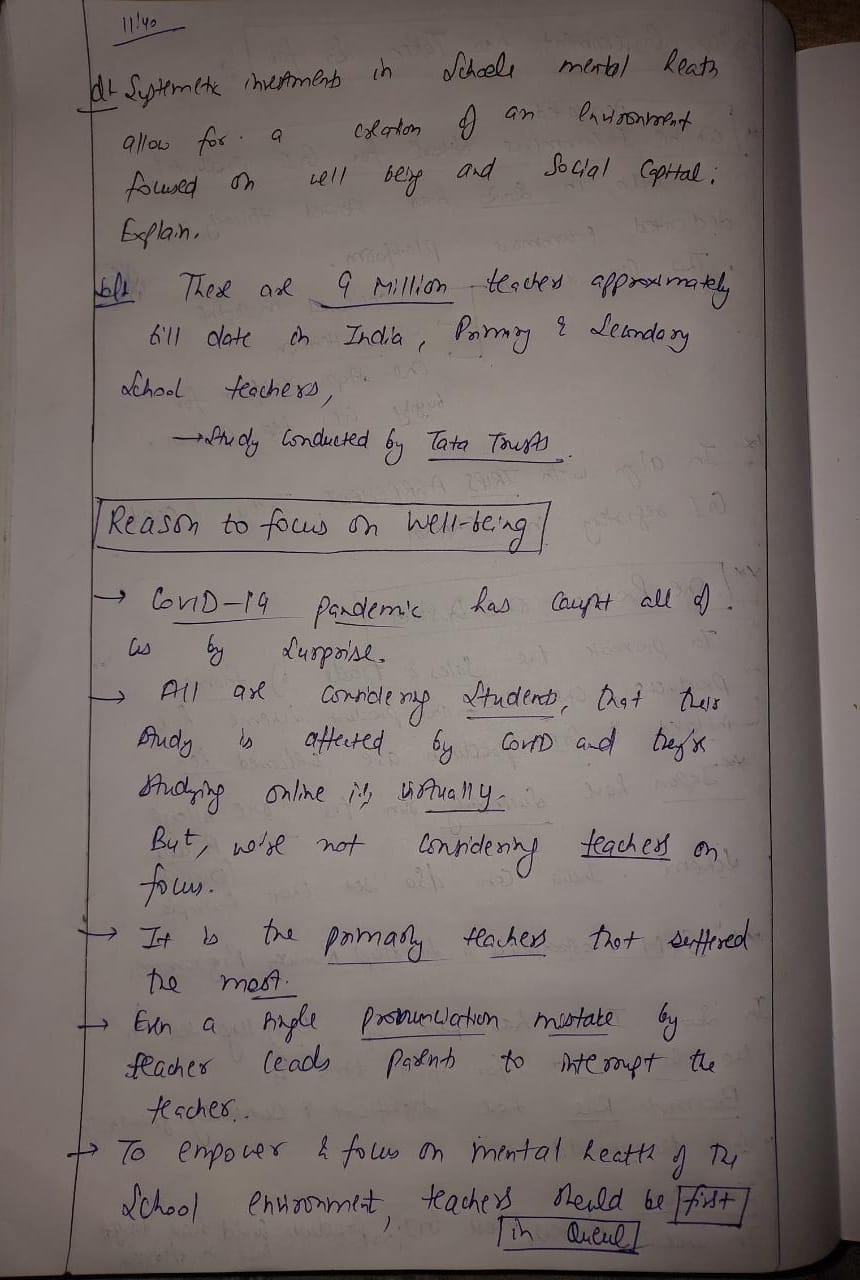 11:40
Q1 Systemetic investments in Schools mental heath
allow for a creation of an environment
focused on well being and Social Capital.
Explain.
Sol: These are 9 Million teachers approximately
till date in India, Primary & Secondary
School teachers,
→ Study conducted by Tata Trusts.
Reason to focus on Well-being
→ COVID-19 pandemic has caught all of
us by surprise.
→ All are considering Students, that their
study is affected by COVID and they're
studying online i.e, virtually.
But, we're not considering teachers on
focus.
→ It is the primary teachers that suffered
the most.
→ Even a single pronunciation mistake by
teacher leads parents to interrupt the
teacher..
→ To empower & focus on mental heatth of the
School environment, teachers should be first
in Queue